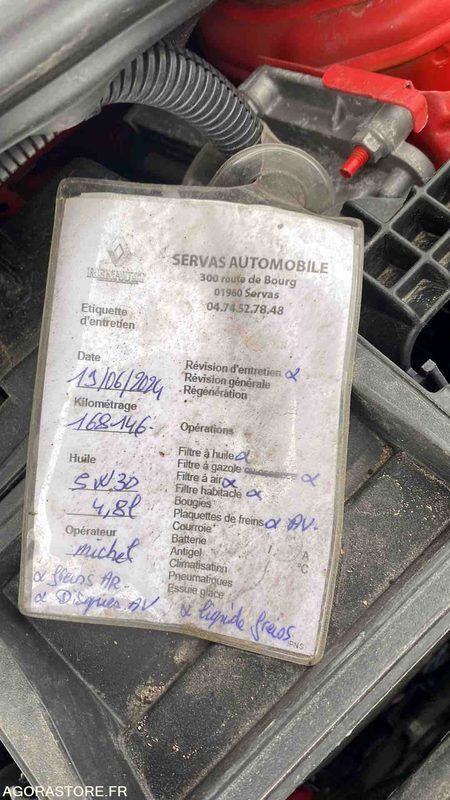 RENAULT
SERVAS AUTOMOBILE
300 route de Bourg
01960 Servas
04.74.52.78.48
Etiquette
d'entretien
Date
19/06/2024
Kilométrage
168146
Huile
5W30
4,8l
Opérateur
michel
α freins AR
α Disques AV
Révision d'entretien α
Révision générale
Régénération
Opérations
Filtre à huile α
Filtre à gazole α
Filtre à air α
Filtre habitacle α
Bougies
Plaquettes de freins α AV.
Courroie
Batterie A
Antigel °C
Climatisation
Pneumatiques
Essuie glace
α liquide freins
IPNS
AGORASTORE.FR